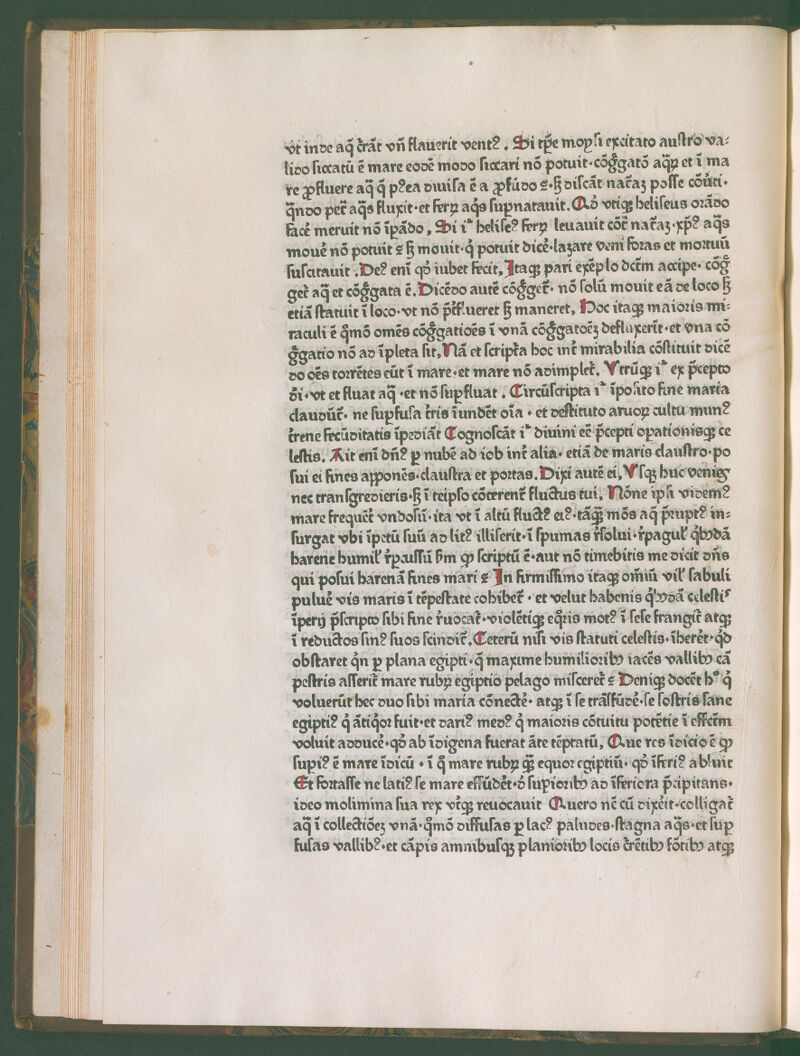 vt inde aq̄ er̄āt vn̄ flauerit vent⁹. Si tp̄e moysi excitato austro va⸗
lido siccatū ē mare eodē modo siccari nō potuit·cōg̃gatō aqꝝ et ī ma
re ꝓfluere aq̄ q̄ p⁹ea diuisa ē a ꝓfūdo ⁊·ꝫ discāt nat̃aꝫ posse cōūti·
qn̄do pet̃ aq̄s fluxit·et ferꝝ aq̄s supnatauit. Qď vtiqꝫ heliseus orādo
facē meruit nō īpādo, Si iᵗ helise⁹ ferꝝ leuauit cōt̃ nat̃aꝫ·xp̄⁹ aq̄s
mouē nō potuit ⁊ ꝫ mouit·q̇ potuit dicē·lazare veni foras et mortuū
suscitauit. De⁹ enī qď iubet fecit, Itaqꝫ pari exēplo dc̄m accipe·cōg̃
get̃ aq̄ et cōg̃gata ē. Dicēdo autē cōg̃get̃· nō solū mouit eā de loco ꝫ
etiā statuit ī loco·vt nō p̄t̃flueret ꝫ maneret, Hoc itaqꝫ maioris mi⸗
raculi ē qm̊ō omēs cōg̃gatiōēs ī vnā cōg̃gatōeꝫ defluxerīt·et vna cō
g̃gatio nō ad īpleta sit, Nā et script̃a hoc int̃ mirabilia cōstituit dicē
do oēs torrētes eūt ī mare·et mare nō adimplet̃. Vtrūqꝫ iᵗ ex p̄cepto
ďi·vt et fluat aq̄·et nō supfluat. Circūscripta iᵗ īposito fine maria
claudūt̃· ne supfusa t̃ris īundēt oīa·et destituto aruoꝝ cultu mun⁹
t̃rene fecūditatis īpediāt Cognoscāt iᵗ diuini eē p̄cepti opationisqꝫ ce
lestis. Ait enī dn̄⁹ p nubē ad iob int̃ alia· etiā de maris claustro·po
sui ei fines apponēs·claustra et portas. Dixi autē ei, Vsqꝫ huc venies
nec transgredieris·ꝫ ī teipso cōterent̃ fluctus tui, Nōne ipsi videm⁹
mare frequēt̃ vndosū·ita vt ī altū fluct⁹ ei⁹·tāqꝫ mōs aq̄ p̄rupt⁹ in⸗
surgat vbi īpetū suū ad lit⁹ illiserit·ī spumas r̃solui·r̃pagul̃ qb̊dā
harene humil̃ r̃pcussū ẜm ꝙ scriptū ē·aut nō timebitis me dicit dn̄s
qui posui harenā fines mari ⁊ In firmissimo itaqꝫ om̄iū vil̃ sabuli
puluē vis maris ī tēpestate cohibet̃·et velut habenis qb̊dā celestiˢ
īperij p̄scripto sibi fine r̃uocat̃·violētiqꝫ eq̊ris mot⁹ ī sese frangit̃ atqꝫ
ī reductos sin⁹ suos scindit̃. Ceterū nisi vis statuti celestis·īherēt̃·qď
obstaret qn̄ p plana egipti·q̄ maxime humilioribꝰ iacēs vallibꝰ cā
pestris asserit̃ mare rubꝝ egiptio pelago misceret̃ ⁊ Deniqꝫ docēt h° q̇
voluerūt hec duo sibi maria cōnectē· atqꝫ ī se trāsfūdē·se sostris sane
egipti⁹ q̇ ātiq̊r fuit·et dari⁹ med⁹ q̇ maioris cōtuitu potētie ī effc̄m
voluit adducē·qď ab īdigena fuerat āte tēptatū, Que res īdicio ē ꝙ
supi⁹ ē mare īdicū·ī q̊ mare rubꝝ qꝫ equor egiptiū·qď īferi⁹ abluit
Et fortasse ne lati⁹ se mare effūdēt·ď supioribꝰ ad īferiora p̄cipitans·
ideo molimina sua rex vt̃qꝫ reuocauit Quero nc̄ cū dixēit·colligat̃
aq̄ ī collectiōeꝫ vnā·qm̊ō diffusas p lac⁹ paludes·stagna aq̄s·et sup
fusas vallib⁹·et cāpis amnibusqꝫ planioribꝰ locis er̄ētibꝰ fōtibꝰ atqꝫ